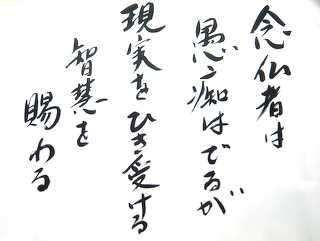 念仏者は
愚痴はでるが
現実をひき受ける
智慧を
賜わる